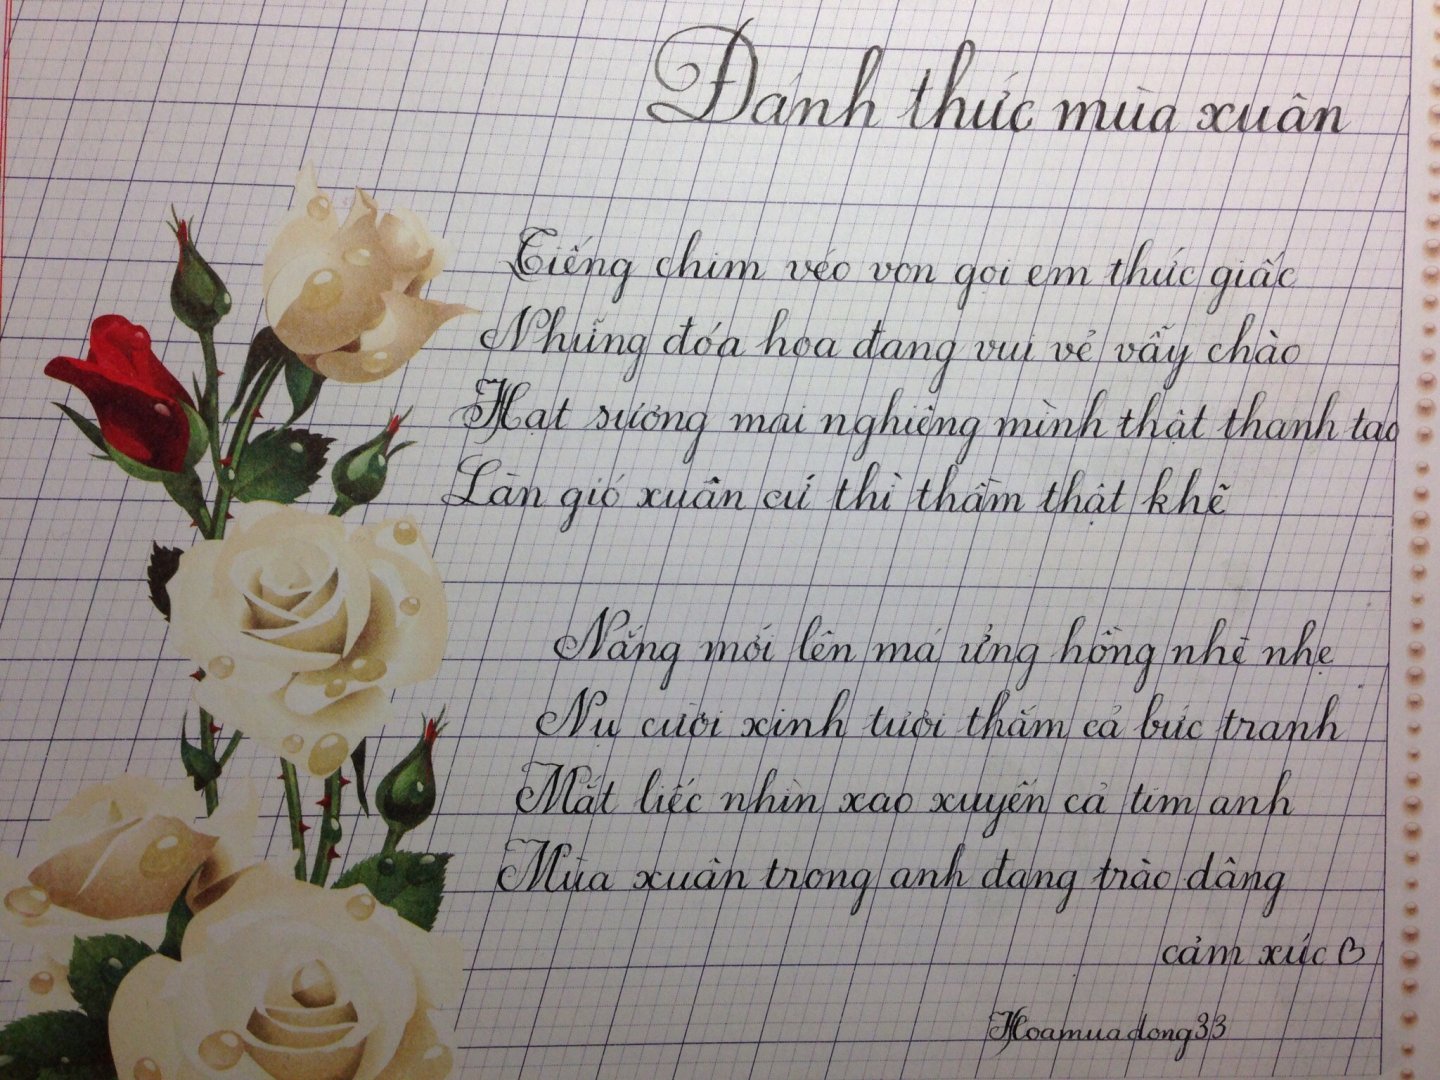 Đánh thức mùa xuân
Tiếng chim véo von gọi em thức giấc
Những đóa hoa đang vui vẻ vẫy chào
Hạt sương mai nghiêng mình thật thanh tao
Làn gió xuân cứ thì thầm thật khẽ
Nắng mới lên má ửng hồng nhè nhẹ
Nụ cười xinh tươi thắm cả bức tranh
Mắt liếc nhìn xao xuyến cả tim anh
Mùa xuân trong anh đang trào dâng
cảm xúc ♡
Hoamuadong33